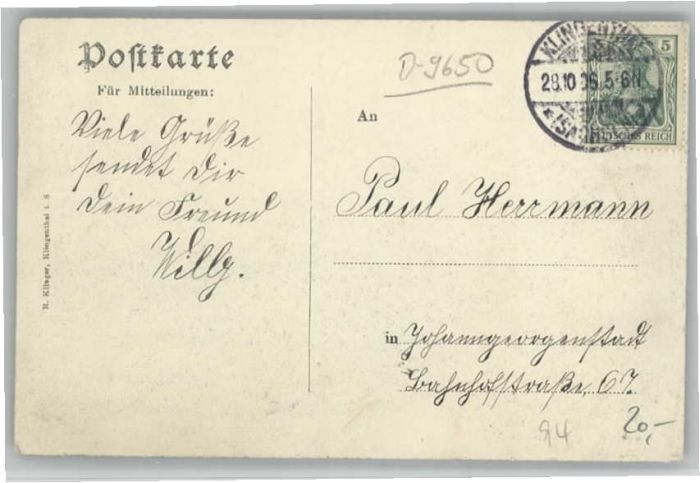 Postkarte
Für Mitteilungen:
Viele Grüße
sendet Dir
Dein Freund
Willy.
R. Klinger, Klingenthal i. S
D-9650
An
Paul Herrmann
in Johanngeorgenstadt
Bahnhofstraße, 67.
KLINGENTHAL
28.10 06.5-6N
(SACHSEN)
5
DEUTSCHES REICH
94
20,-